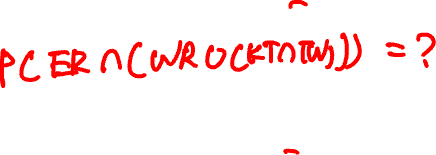 PCER∩(WRU(KT∩TW)) = ?